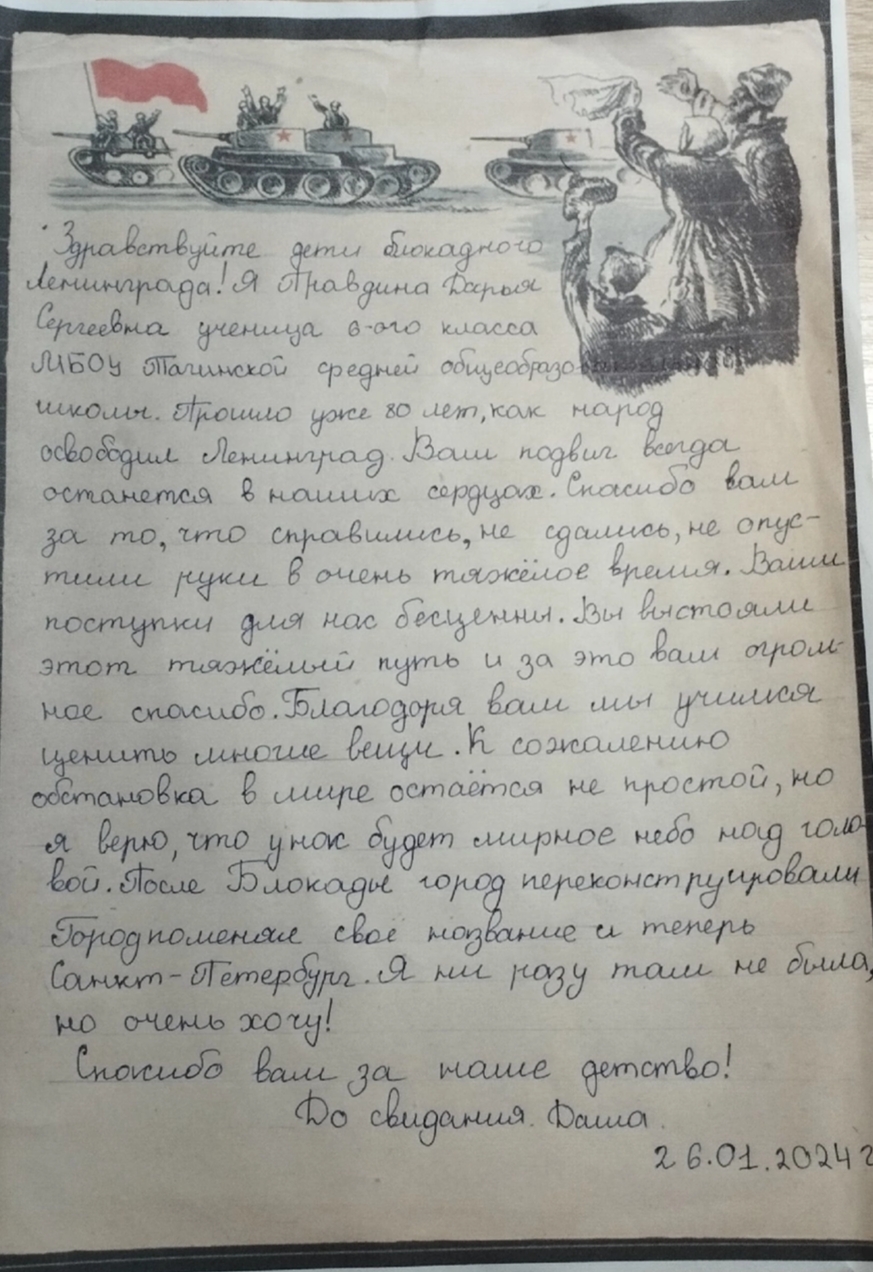 Здравствуйте дети блокадного
Ленинграда! Я Правдина Дарья
Сергеевна ученица 6-ого класса
МБОУ Тагинской средней общеобразовательной
школы. Прошло уже 80 лет, как народ
освободил Ленинград. Ваш подвиг всегда
останется в наших сердцах. Спасибо вам
за то, что справились, не сдались, не опус-
тили руки в очень тяжёлое время. Ваши
поступки для нас бесценны. Вы выстояли
этот тяжёлый путь и за это вам огром-
ное спасибо. Благодоря вам мы учимся
ценить многие вещи. К сожалению
обстановка в мире остаётся не простой, но
я верю, что у нас будет мирное небо над голо-
вой. После Блокады город переконструировали
Город поменял своё название и теперь
Санкт-Петербург. Я ни разу там не была,
но очень хочу!
Спасибо вам за наше детство!
До свидания. Даша.
26.01.2024 г